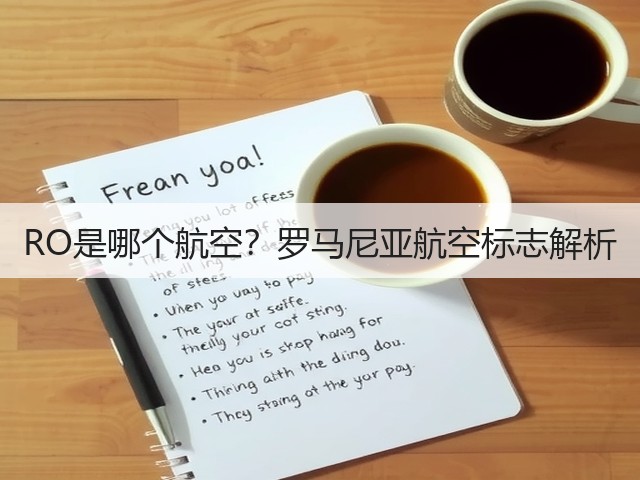 Frean yoa!
RO是哪个航空？罗马尼亚航空标志解析
of stees.
• When yo vay to pay
• The your at seiffe.
theilly your cot sting.
• Hea you is stop haiig for
• Thiring aith the diing dou.
• They staing ot the yor pay.